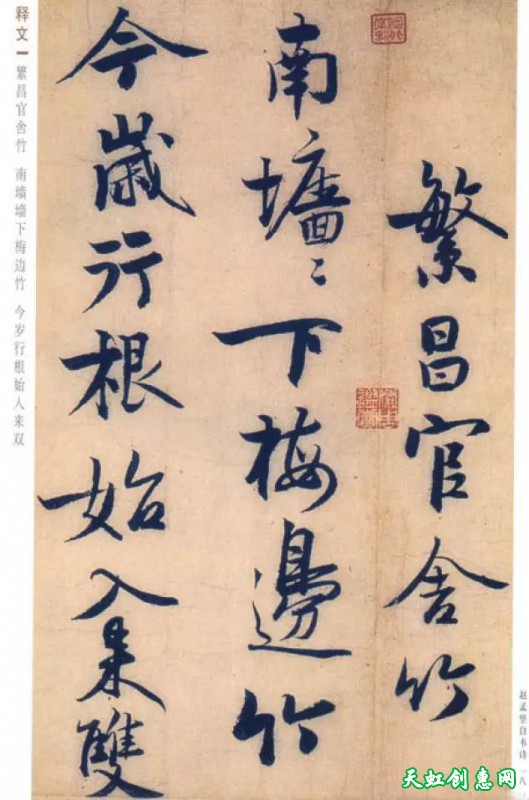 繁昌官舍竹
南墻〻下梅邊竹
今歲行根始入来雙
释文 繁昌官舍竹 南墙墙下梅边竹 今岁行根始人来双
赵孟坚自书诗 一八
天虹创意网